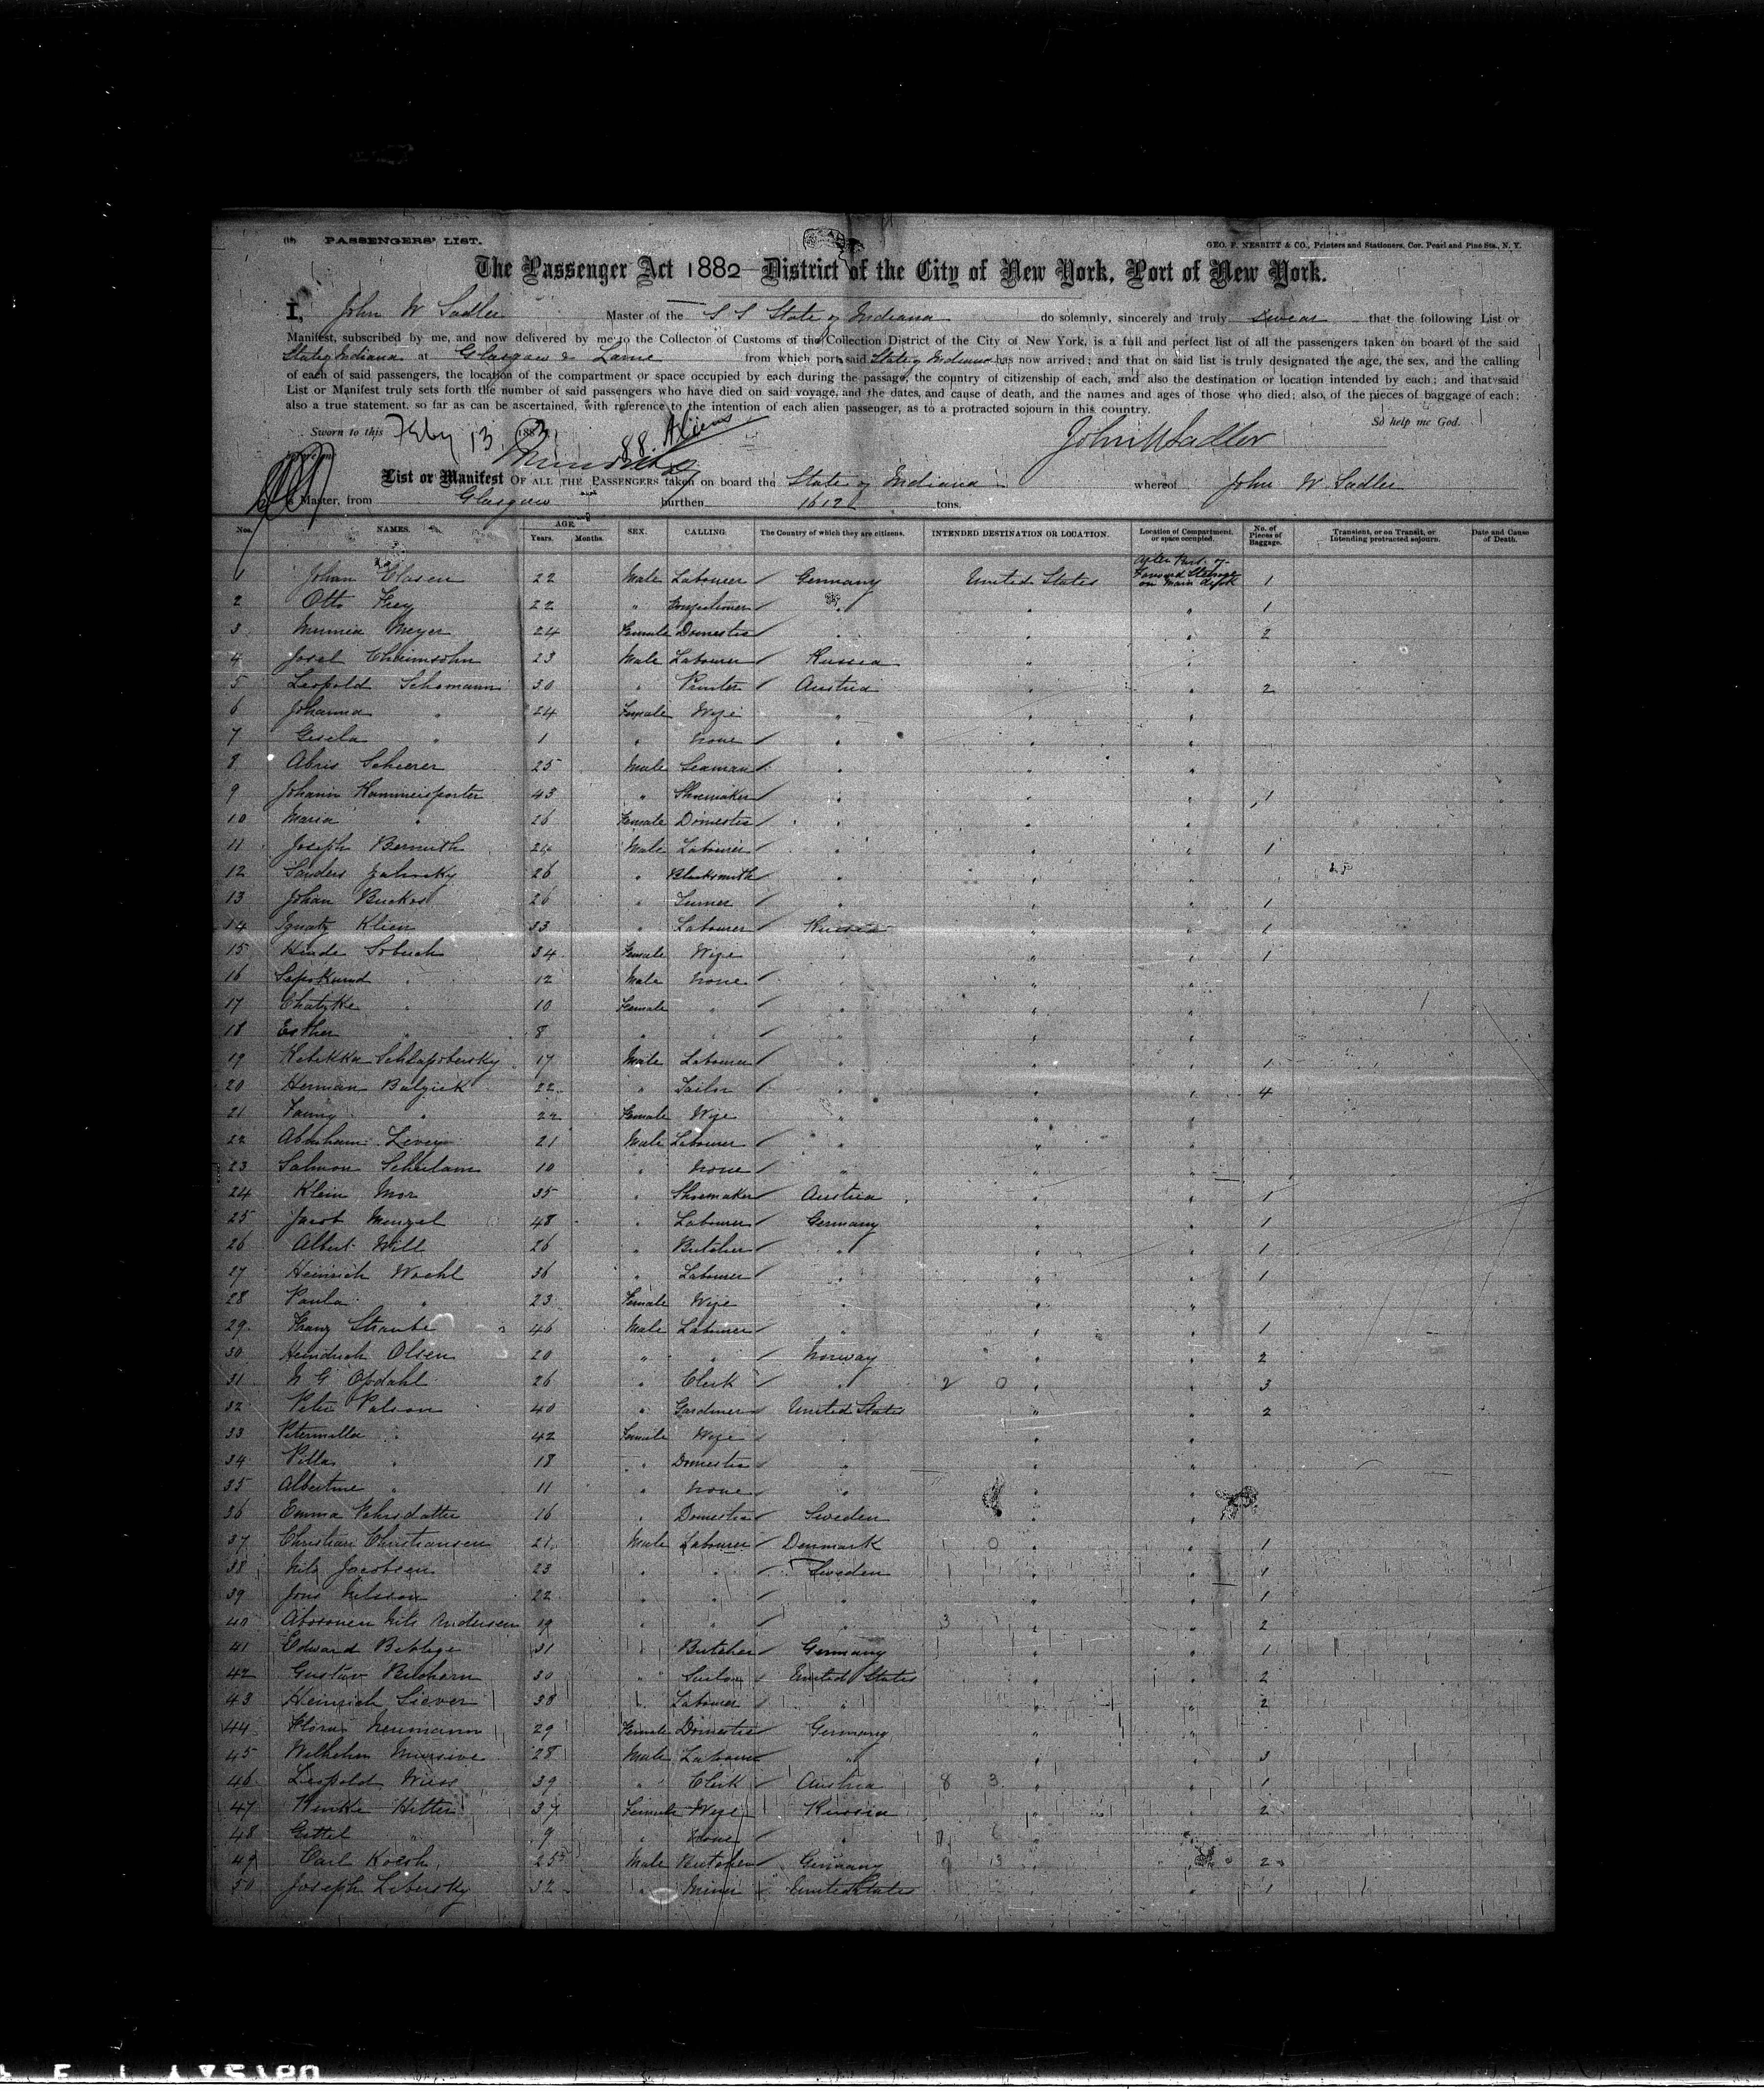 PASSENGERS' LIST.
GEO. F. NESBITT & CO., Printers and Stationers, Cor. Pearl and Pine Sts., N. Y.
The Passenger Act 1882 District of the City of New York, Port of New York.
I, John W Sadler Master of the S S State of Indiana do solemnly, sincerely and truly swear that the following List or
Manifest, subscribed by me, and now delivered by me to the Collector of Customs of the Collection District of the City of New York, is a full and perfect list of all the passengers taken on board of the said
State of Indiana at Glasgow & Larne from which port said State of Indiana has now arrived; and that on said list is truly designated the age, the sex, and the calling
of each of said passengers, the location of the compartment or space occupied by each during the passage, the country of citizenship of each, and also the destination or location intended by each; and that said
List or Manifest truly sets forth the number of said passengers who have died on said voyage, and the dates, and cause of death, and the names and ages of those who died; also, of the pieces of baggage of each;
also a true statement, so far as can be ascertained, with reference to the intention of each alien passenger, as to a protracted sojourn in this country.
So help me God.
Sworn to this Feby 13 188
88 Aliens
John W Sadler
List or Manifest OF ALL THE PASSENGERS taken on board the State of Indiana whereof John W. Sadler
is Master, from Glasgow burthen 1612 tons.
Nos. NAMES. AGE. Years. Months. SEX. CALLING. The Country of which they are citizens. INTENDED DESTINATION OR LOCATION. Location of Compartment, or space occupied. No. of Pieces of Baggage. Transient, or on Transit, or Intending protracted sojourn. Date and Cause of Death.
1 Johan Clasen 22 Male Labourer Germany United States After Part of Forward Steerage on Main 1
2 Otto Frey 22 " Confectioner " " " 1
3 Meyer 24 Female Domestic " " " 2
4 Josel Chaimsohn 23 Male Labourer Russia " "
5 Leopold Schomann 30 " Austria " " 2
6 Johanna " 24 Female Wife " " "
7 Gisela " 1 " None " " "
8 Scheerer 25 Male Seaman " " "
9 Johann 43 " Shoemaker " " " 1
10 Maria " 26 Female Domestic " " "
11 Joseph Bermuth 24 Male Labourer " " " 1
12 Sanders 26 " Blacksmith " " "
13 Johan 26 " Turner " " " 1
14 Ignatz Klien 33 " Labourer Russia " " 1
15 Hinde 34 Female Wife " " " 1
16 " 12 Male None " " "
17 Chatzke " 10 Female " " " "
18 Esther " 8 " " " " "
19 Rebekka Schlapobersky 17 Male Labourer " " " 1
20 Herman 22 " Tailor " " " 4
21 Fanny " 22 Female Wife " " "
22 Abraham 21 Male Labourer " " "
23 Salmon 10 " None " " "
24 Klein Mor 35 " Shoemaker Austria " " 1
25 Jacob Menzel 48 " Labourer Germany " " 1
26 Albert Will 26 " Butcher " " " 1
27 Heinrich Woehl 36 " Labourer " " " 1
28 Paula " 23 Female Wife " " "
29 Franz Straube 46 Male Labourer " " " 1
30 Hendrich Olsen 20 " " Norway " " 2
31 N G Opdahl 26 " Clerk " " " 3
32 Peter Palson 40 " Gardiner United States " " 2
33 " 42 Female Wife " " "
34 " 18 " Domestic " " "
35 Albertine " 11 " None " " "
36 Emma Pehrsdatter 16 " Domestic Sweden " "
37 Christian Christiansen 21 Male Labourer Denmark " " 1
38 Nils Jacobsen 23 " " Sweden " " 1
39 Jons Nilsson 22 " " " " " 1
40 Nils Andersen 19 " " " " " 2
41 Edward 31 " Butcher Germany " " 1
42 Gustav 30 " United States " " 2
43 Heinrich Siever 38 " Labourer " " " 2
44 Neumann 29 Female Domestic Germany " "
45 Wilhelm 28 Male Labourer " " " 3
46 Leopold 39 " Clerk Austria " " 1
47 Hitter 37 Female Wife Russia " " 2
48 Gittel " 9 " None " " "
49 Carl Koesh 25 Male Butcher Germany " " 2
50 Joseph Libersky 32 " Miner United States " 1